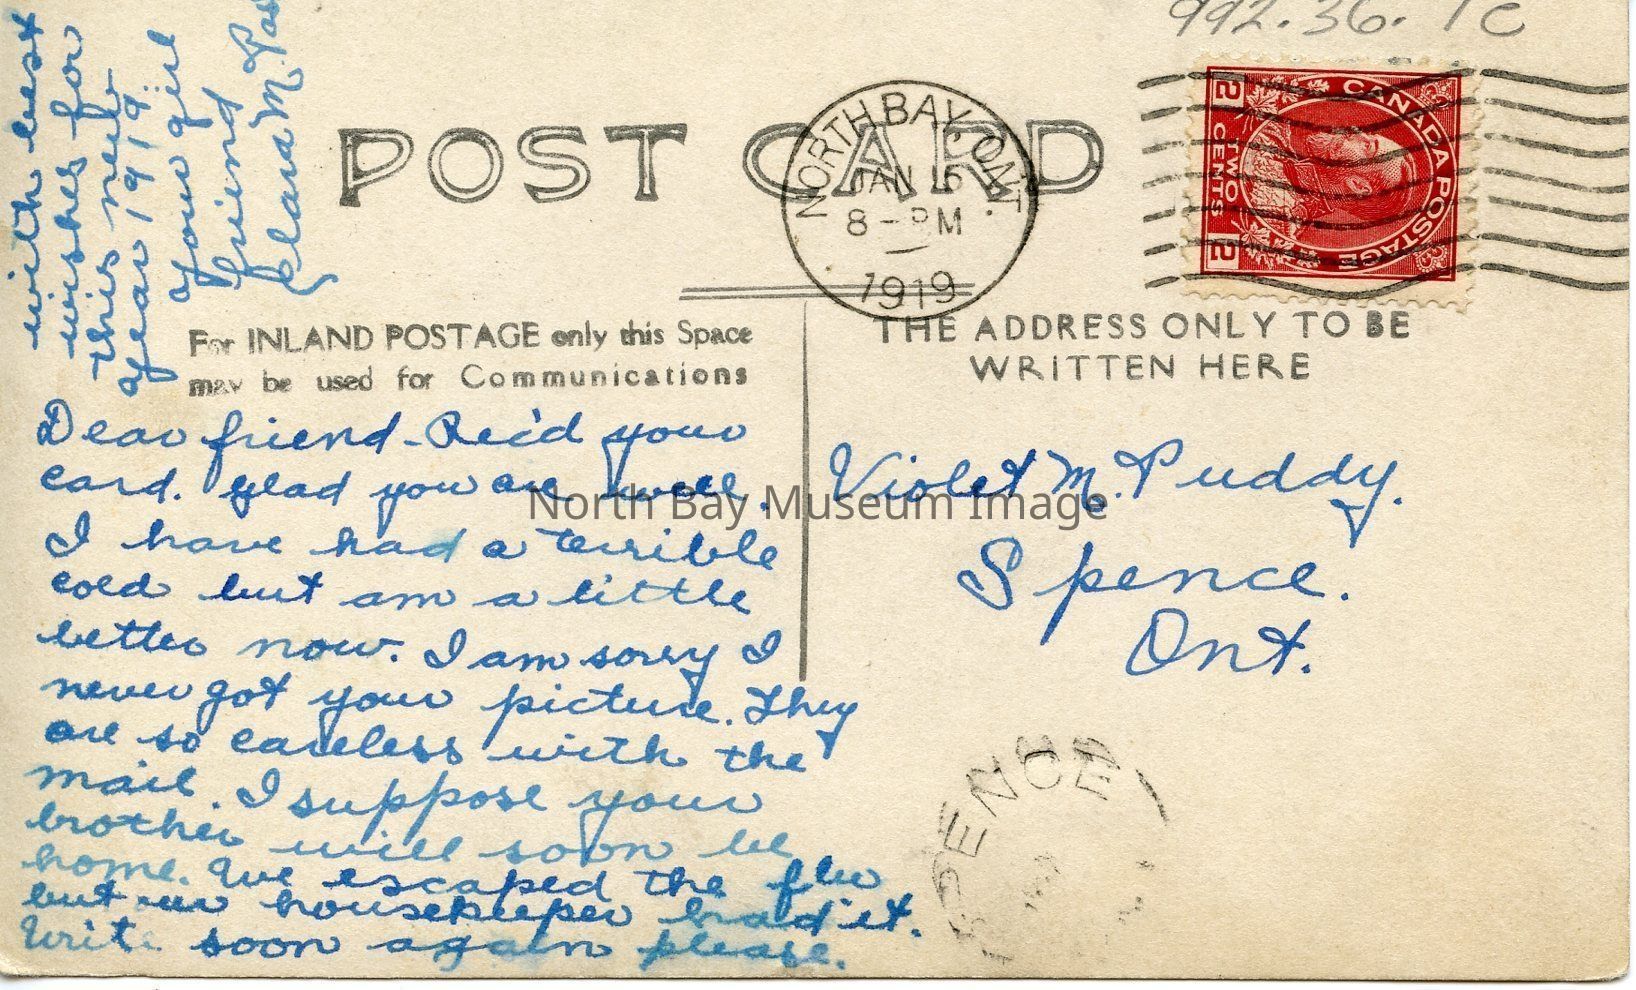 992.36.1c
POST CARD
NORTH BAY, ONT.
JAN 16
8 - PM
1919
CANADA POSTAGE
2 TWO CENTS 2
For INLAND POSTAGE only this Space
may be used for Communications
THE ADDRESS ONLY TO BE
WRITTEN HERE
Dear friend - Rec'd your
card. glad you are well.
I have had a terrible
cold but am a little
better now. I am sorry I
never got your picture. They
are so careless with the
mail. I suppose your
brother will soon be
home. We escaped the flu
but our housekeeper had it.
Write soon again please.
with best
wishes for
this new
year 1919.
your girl
friend
Clara M.
Violet M. Puddy.
Spence.
Ont.
SPENCE
North Bay Museum Image